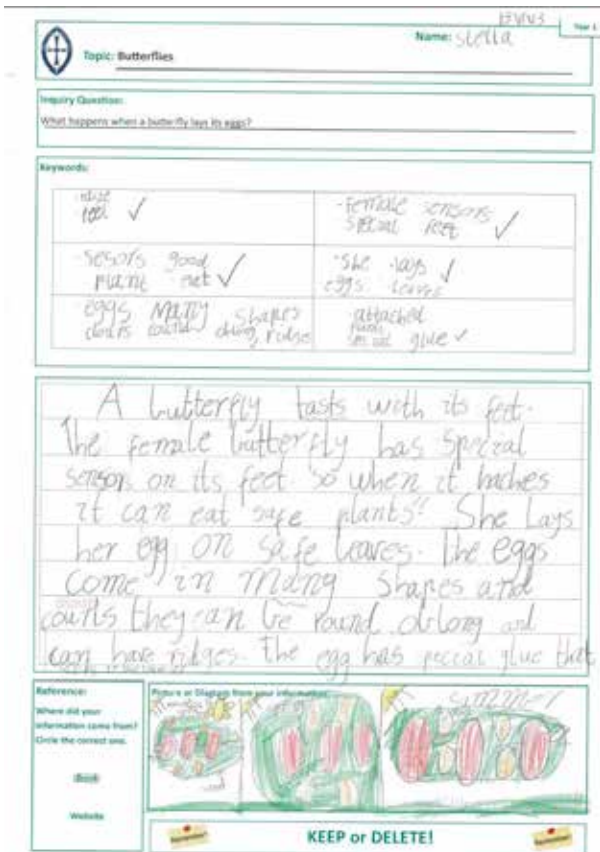 Year 1
Name: Stella
Topic: Butterflies
Inquiry Question:
What happens when a butterfly lays its eggs?
Keywords:
feet
female sensors
special feet
sesors good
plant eat
she lays
eggs leaves
eggs many shapes
oblong ridges
attached
glue
A butterfly tasts with its feet.
The female butterfly has special
sensors on its feet so when it haches
it can eat safe plants. She Lays
her egg on safe leaves. The eggs
come in many shapes and
they can be round oblong and
can have ridges. The egg has glue that
Reference:
Where did your
information come from?
Circle the correct one.
Book
Website
Picture or Diagram from your information:
summer
Remember!
KEEP or DELETE!
Remember!